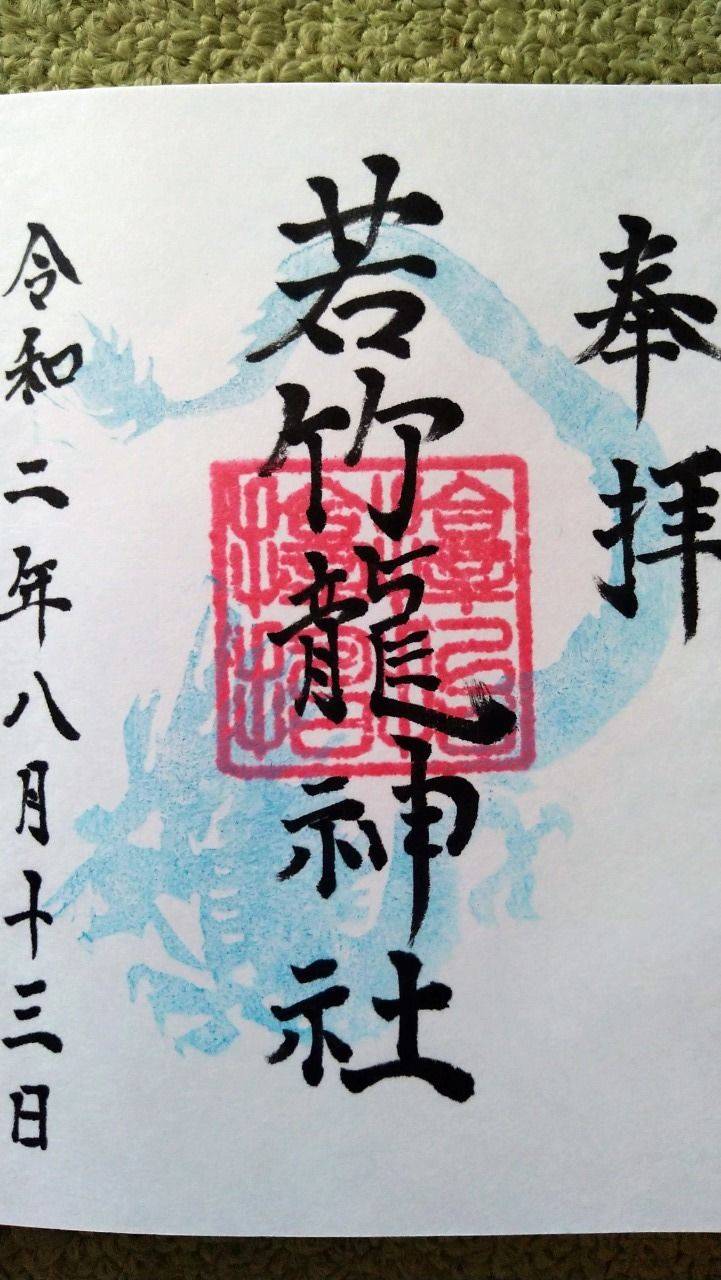 奉拝
若竹龍神社
令和二年八月十三日